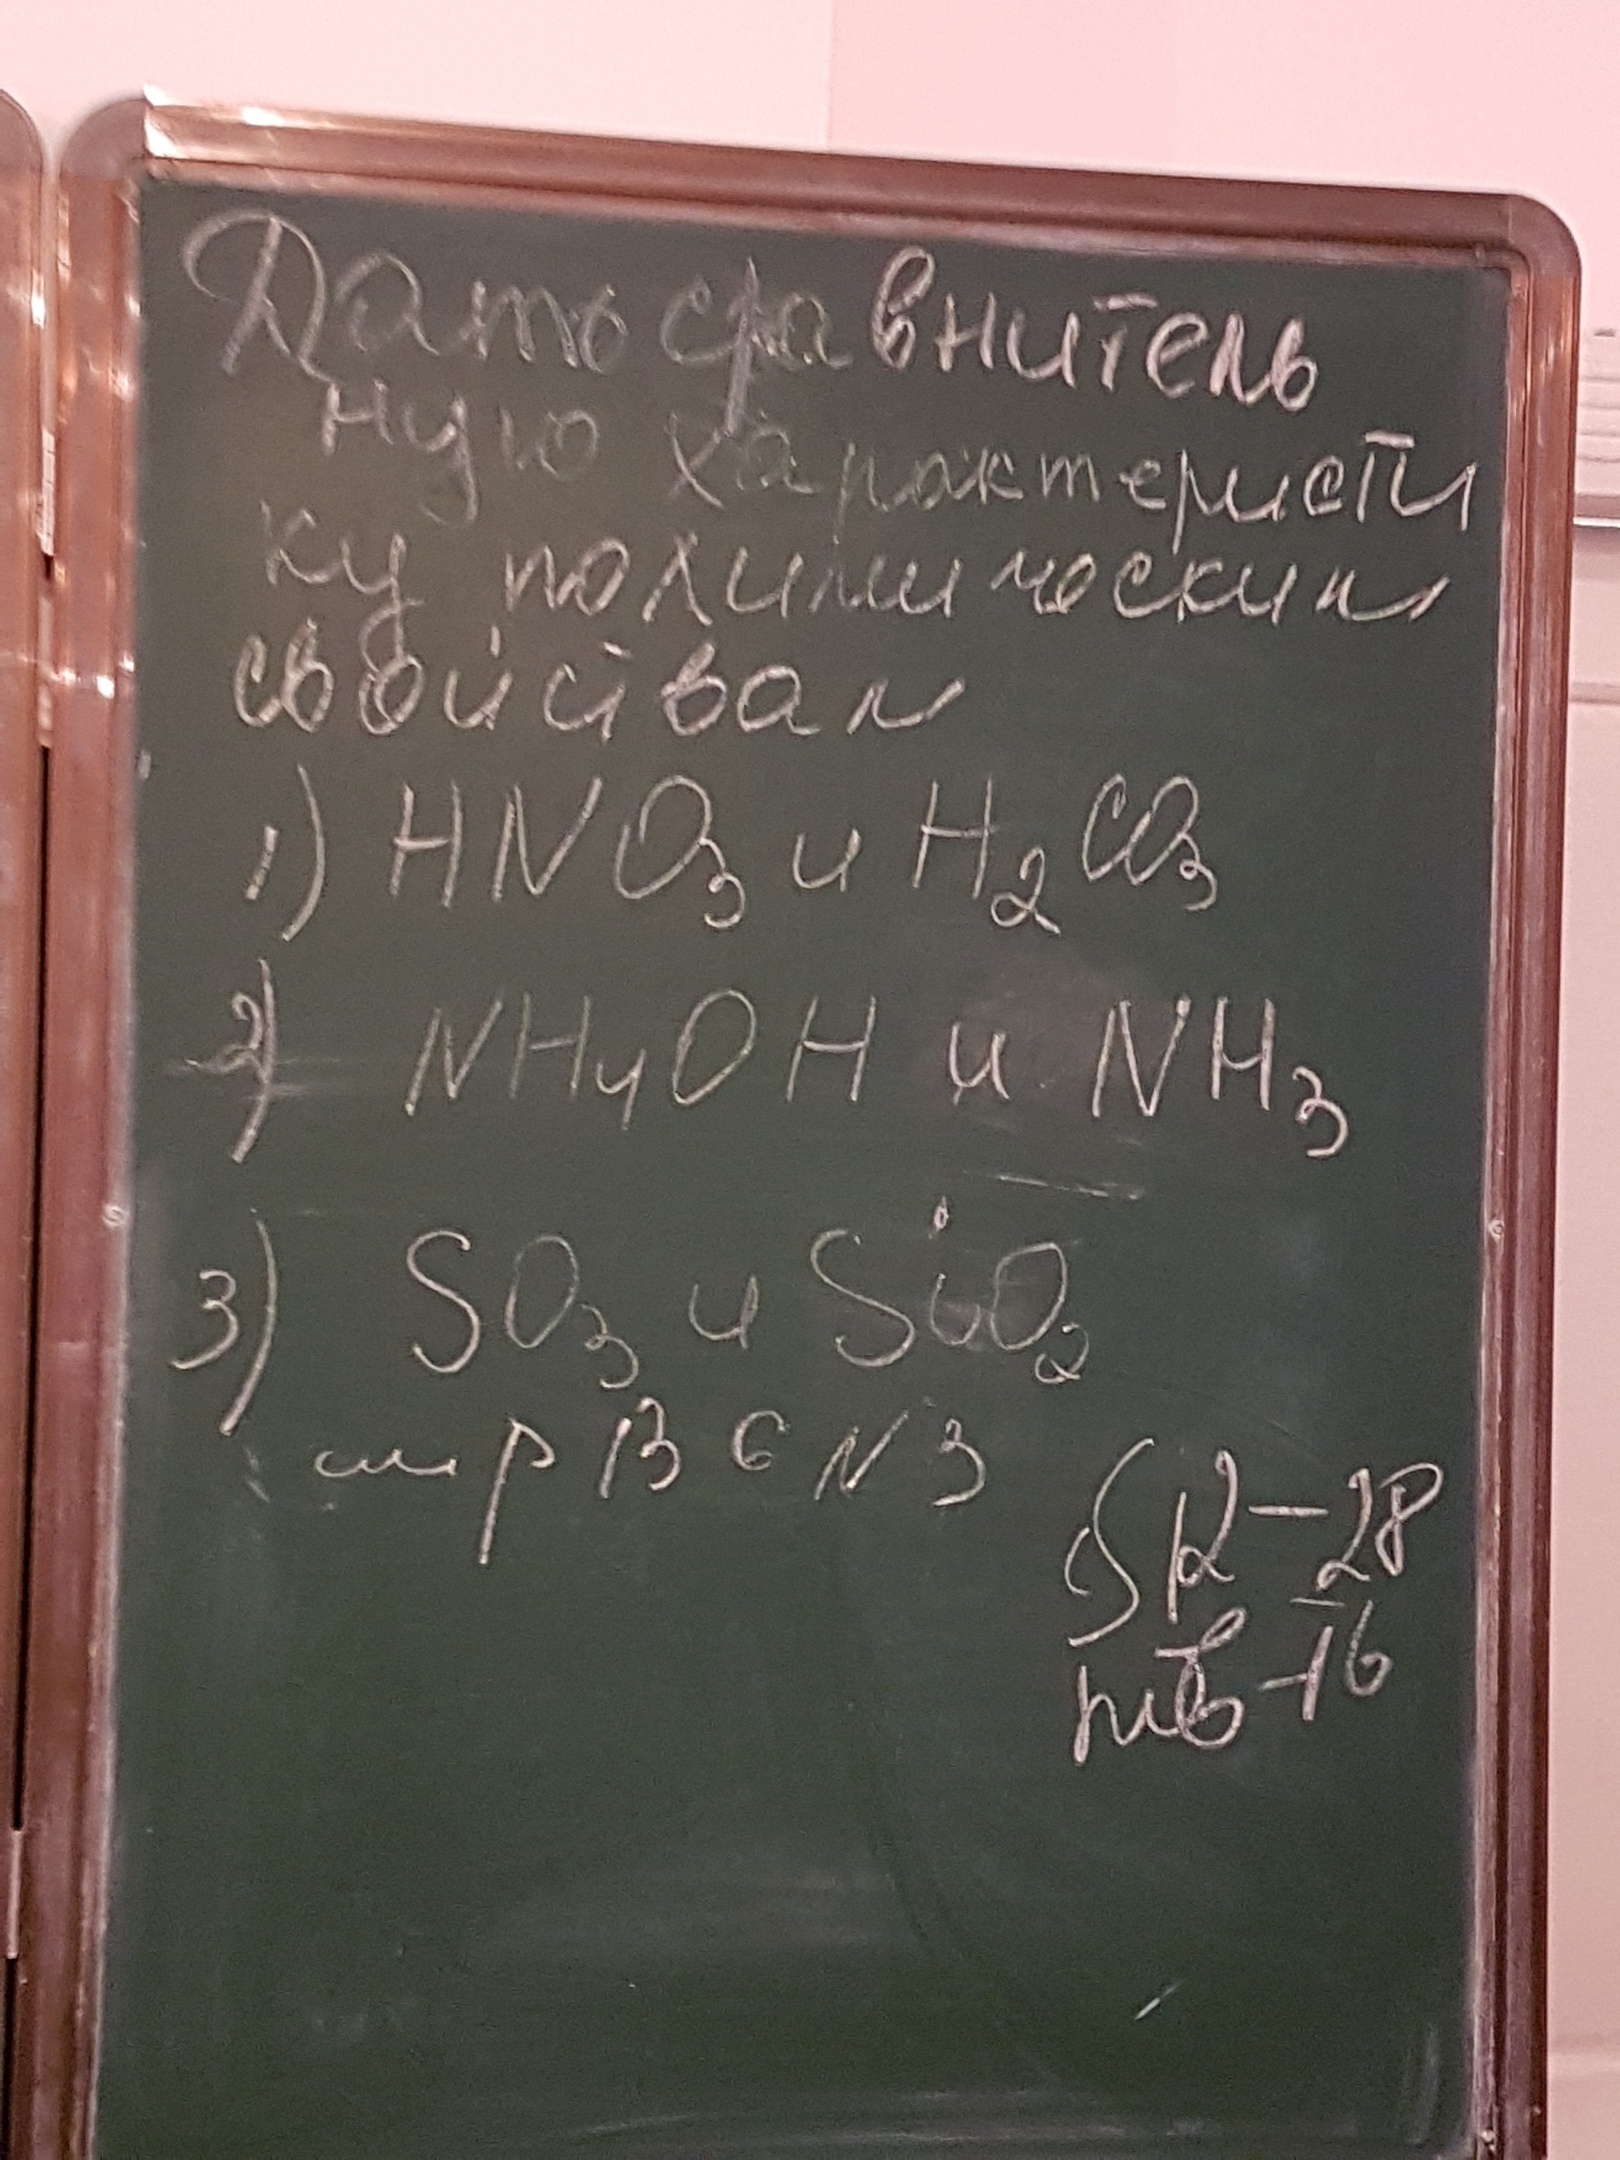 Дать сравнитель
ную характеристи
ку по химическим
свойствам
1) HNO3 и H2CO3
2) NH4OH и NH3
3) SO3 и SiO2
стр 136 N 3
§ 12 - 28
-16